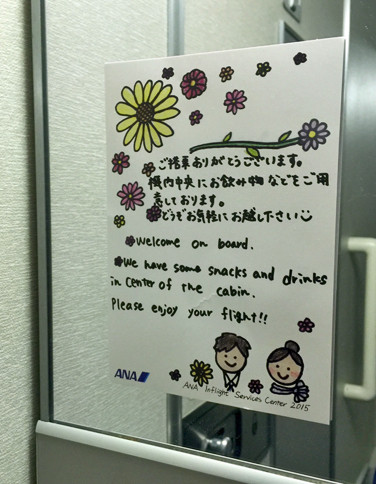 ご搭乗ありがとうございます。
機内中央にお飲み物などをご用
意しております。
どうぞお気軽にお越し下さい
Welcome on board.
We have some snacks and drinks
in center of the cabin.
Please enjoy your flight!!
ANA
ANA Inflight Services Center 2015